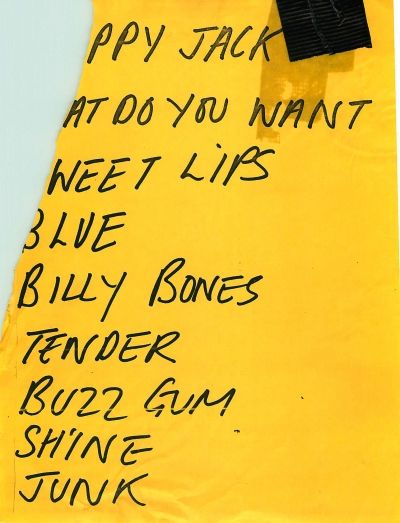 PPY JACK
AT DO YOU WANT
WEET LIPS
BLUE
BILLY BONES
TENDER
BUZZ GUM
SHINE
JUNK